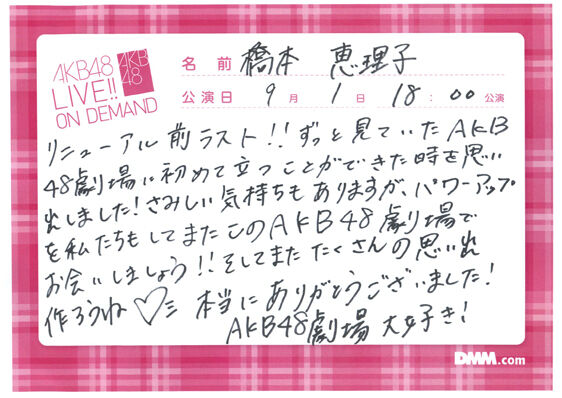 AKB48
LIVE!!
ON DEMAND
AKB
48
名前 橋本 恵理子
公演日 9月 1日 18:00公演
リニューアル前ラスト!!ずっと見ていたAKB
48劇場に初めて立つことができた時を思い
出しました!さみしい気持ちもありますが、パワーアップ
を私たちもしてまたこのAKB48劇場で
お会いしましょう!!そしてまた たくさんの思い出
作ろうね♡ 本当にありがとうございました!
AKB48劇場 大好き!
DMM.com